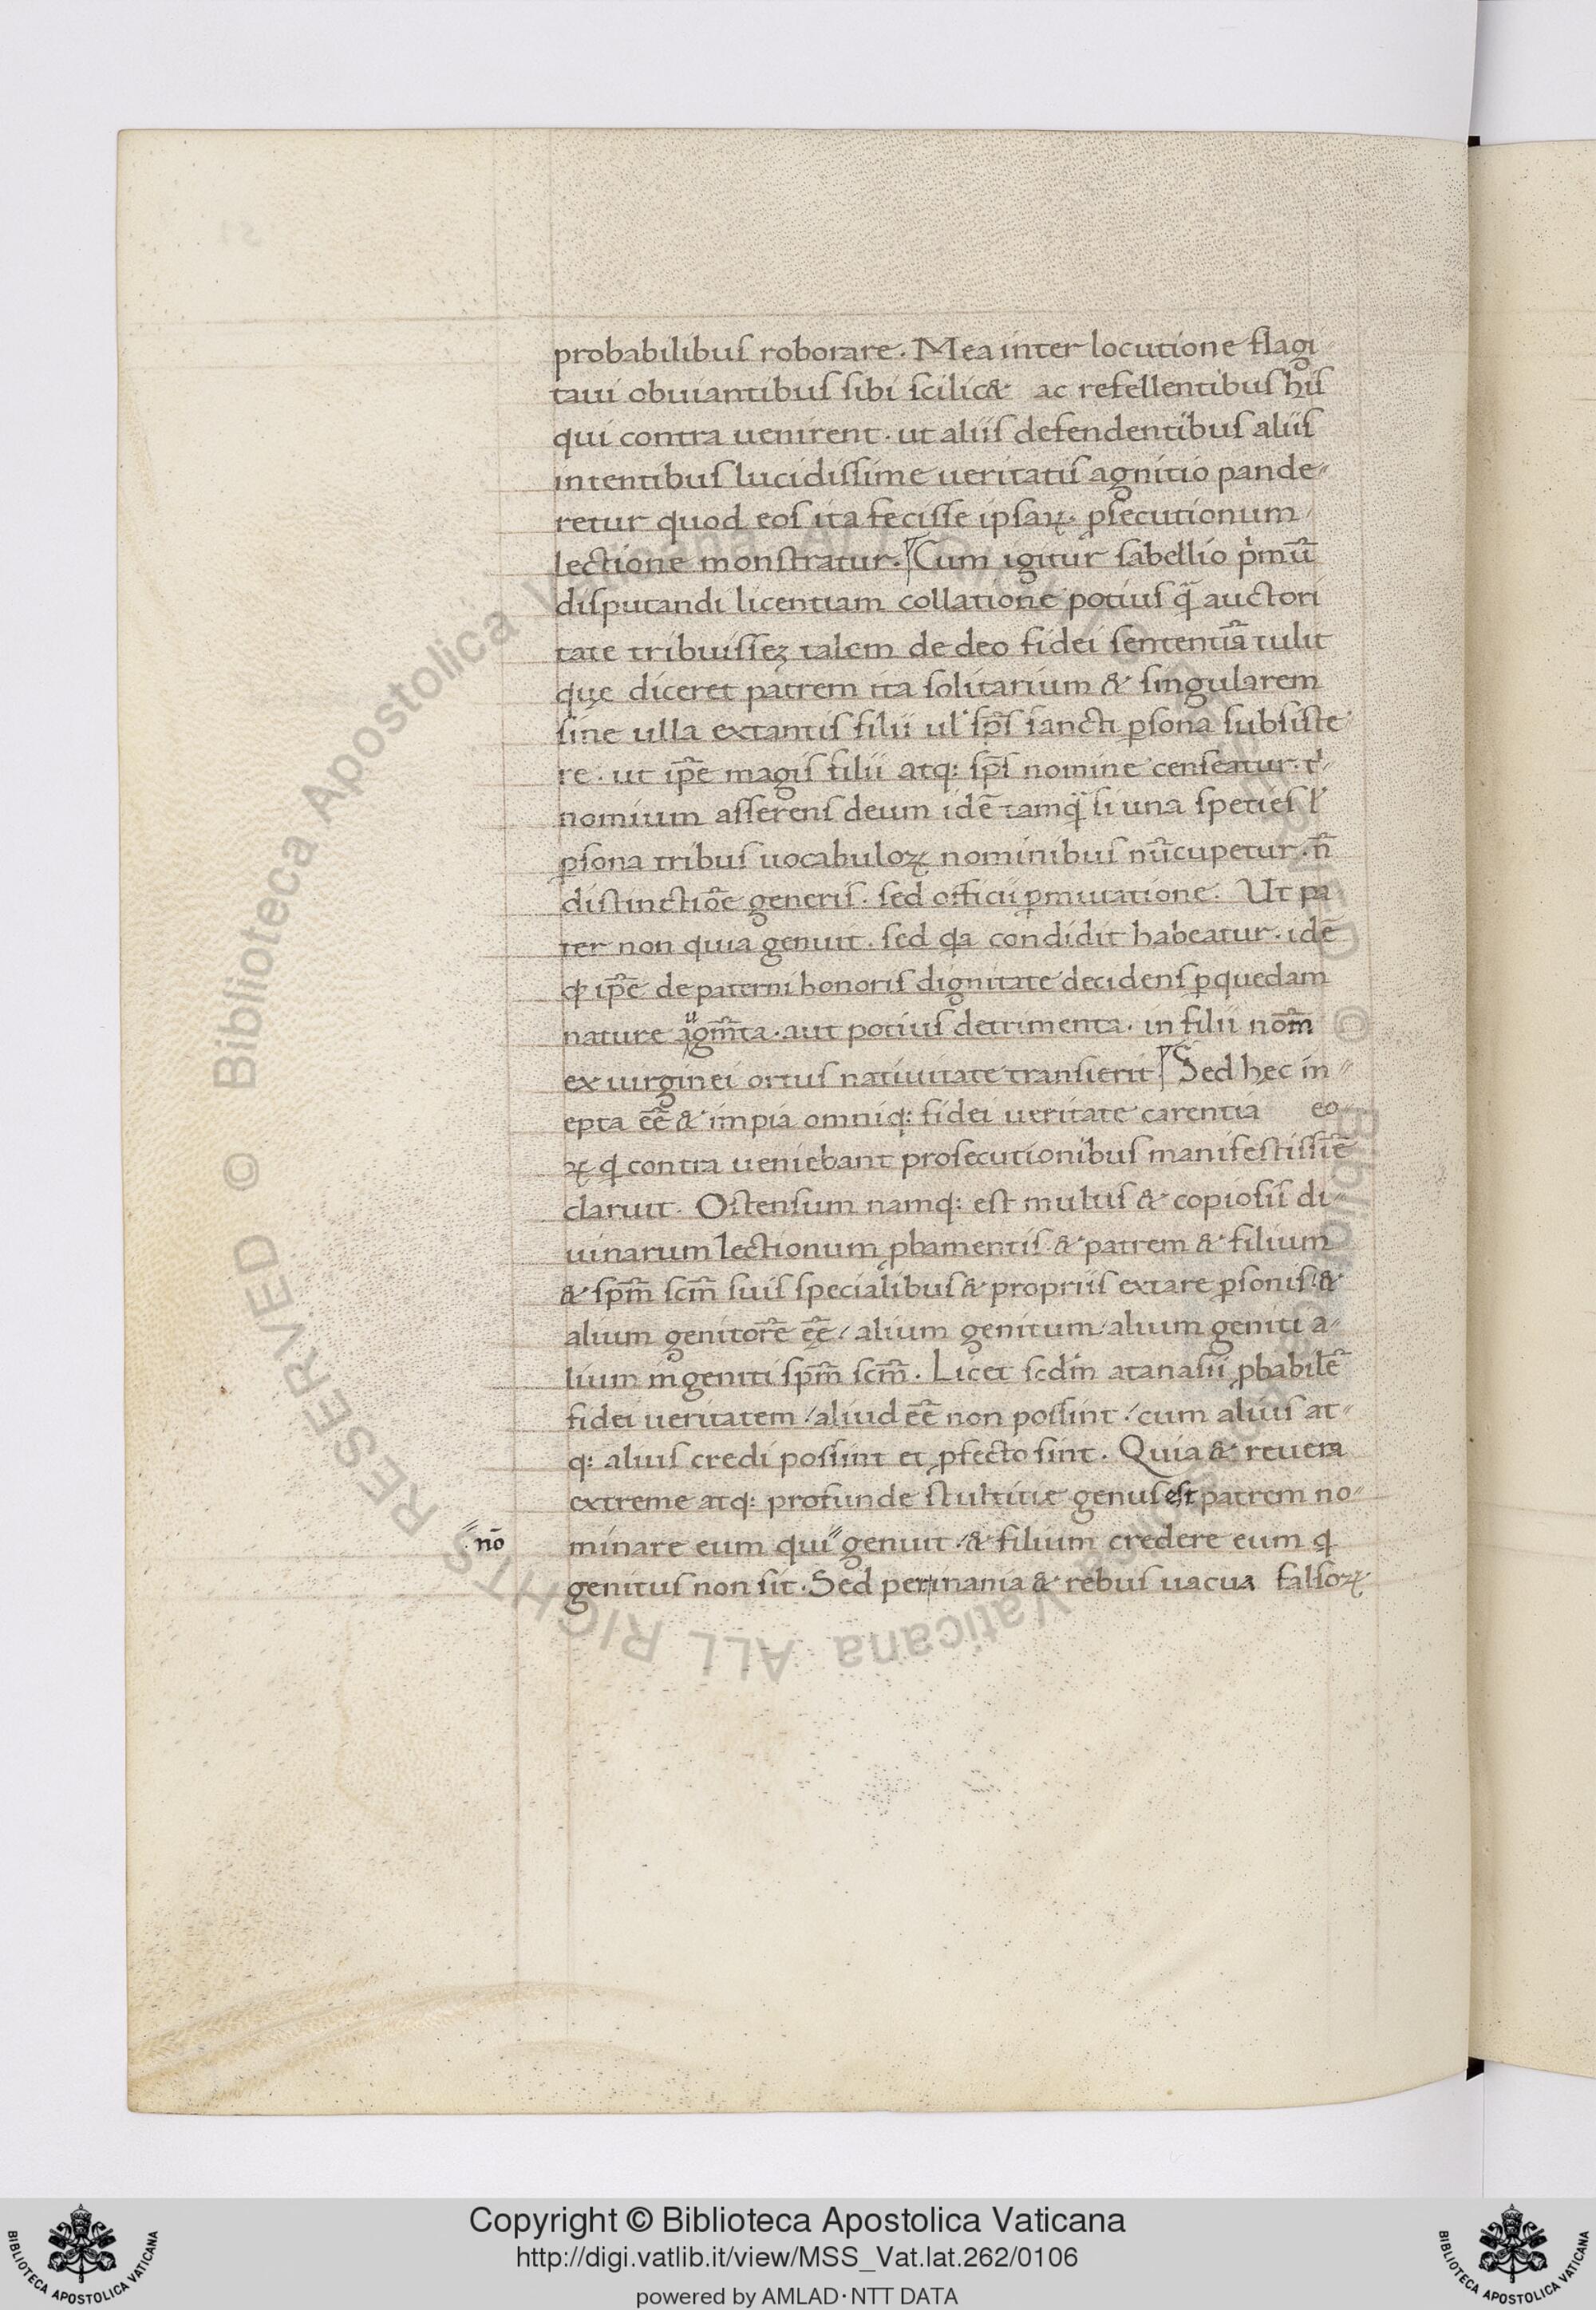 probabilibus roborare. Mea inter locutione flagi-
taui obuiantibus sibi scilic& ac refellentibus his
qui contra uenirent. ut aliis defendentibus aliis
intentibus lucidissime ueritatis agnitio pande-
retur quod eos ita fecisse ipsaꝝ. ꝓsecutionum
lectione monstratur. Cum igitur sabellio pͥmū
disputandi licentiam collatione potius qᷓ auctori
tate tribuissez talem de deo fidei sententiā tulit
que diceret patrem ita solitarium & singularem
sine ulla extantis filii ul' sp̄s sancti ꝑsona subsiste
re. ut ip̄e magis filii atq: sp̄s nomine censeatur. t'-
nomium asserens deum idē tamqᷓ si una speties l'
ꝑsona tribus uocabuloꝝ nominibus nūcupetur. n̄
distinctiōe generis. sed officii ꝑmutatione. Ut pa
ter non quia genuit. sed qa condidit habeatur. idē
ꝙ ip̄e de paterni honoris dignitate decidens ꝑ quedam
nature aͧgm̄ta. aut potius detrimenta. in filii nōm
ex uirginei ortus natiuitate transierit Sed hec in-
epta ēē & impia omniq: fidei ueritate carentia eo-
ꝝ q contra ueniebant prosecutionibus manifestissīē
claruit. Ostensum namq: est multis & copiosis di-
uinarum lectionum ꝓbamentis & patrem & filium
& sp̄m sc̄m suis specialibus & propriis extare ꝑsonis/ &
alium genitorē ēē/ alium genitum/ alium geniti a-
lium ingeniti sp̄m sc̄m. Licet scd̄m atanasii ꝓbabilē
fidei ueritatem/ aliud ēē non possint/ cum alius at-
q: alius credi possint et ꝓfecto sint. Quia & reuera
extreme atq: profunde stultitie genus est patrem no-
minare eum qui" genuit/ & filium credere eum q
genitus non sit. Sed per inania & rebus uacua falsoꝝ
"nō
Copyright © Biblioteca Apostolica Vaticana
http://digi.vatlib.it/view/MSS_Vat.lat.262/0106
powered by AMLAD·NTT DATA
BIBLIOTECA APOSTOLICA VATICANA
BIBLIOTECA APOSTOLICA VATICANA